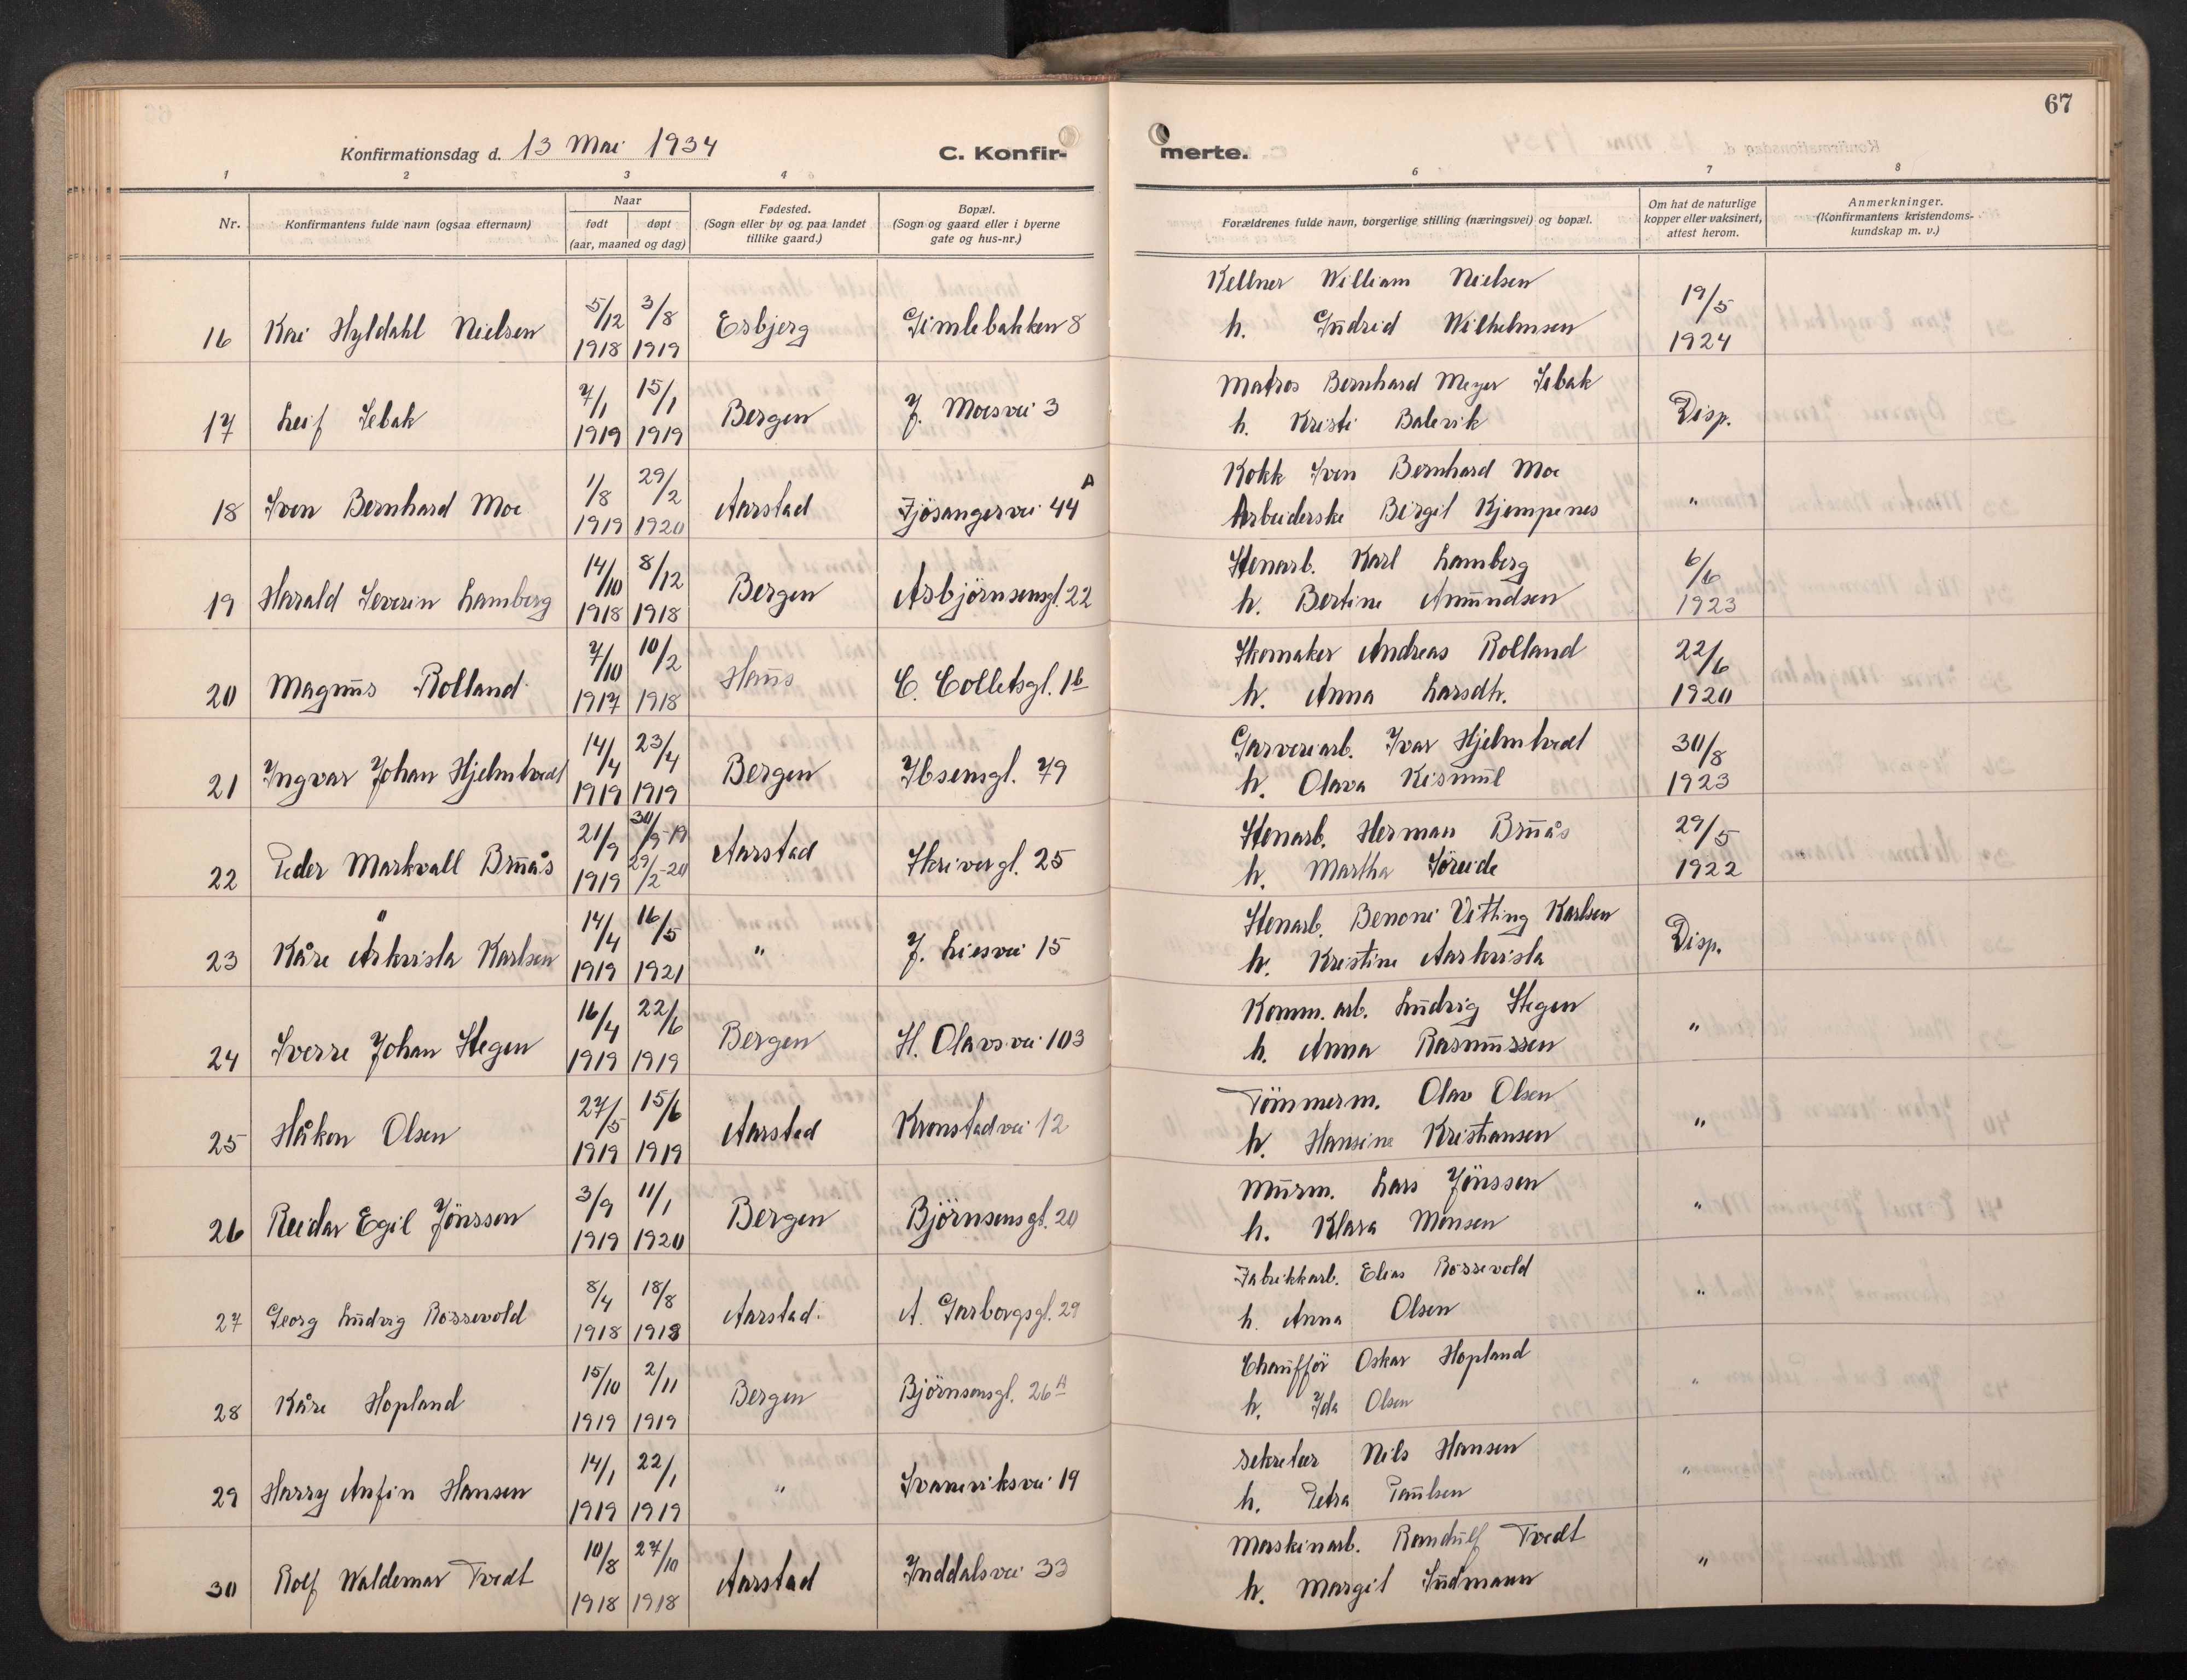 67
Konfirmationsdag d. 13 Mai 1934 C. Konfirmerte.
1 2 3 4 5 6 7 8
Nr. Konfirmantens fulde navn (ogsaa efternavn) Naar født døpt (aar, maaned og dag) Fødested. (Sogn eller by og paa landet tillike gaard.) Bopæl. (Sogn og gaard eller i byerne gate og hus-nr.) Forældrenes fulde navn, borgerlige stilling (næringsvei) og bopæl. Om hat de naturlige kopper eller vaksinert, attest herom. Anmerkninger. (Konfirmantens kristendoms-kundskap m. v.)
16 Kai Hyldahl Nielsen 5/12 1918 3/8 1919 Esbjerg Gimlebakken 8 Kellner William Nielsen
h. Gudrid Wilhelmsen 19/5 1924
17 Leif Sebak 7/1 1919 15/1 1919 Bergen J. Moesvei 3 Matros Bernhard Meyer Sebak
h. Kristi Balevik Disp.
18 Sven Bernhard Moe 1/8 1919 29/2 1920 Aarstad Fjøsangervei 44 A Kokk Sven Bernhard Moe
Arbeiderske Birgit Kjempenes "
19 Harald Severin Lamberg 14/10 1918 8/12 1918 Bergen Asbjørnsensgt. 22 Stenarb. Karl Lamberg
h. Bertine Amundsen 6/6 1923
20 Magnus Rolland 7/10 1917 10/2 1918 Haus C. Colletsgt. 1b Skomaker Andreas Rolland
h. Anna Larsdtr. 22/6 1920
21 Ingvar Johan Hjelmtvedt 14/4 1919 23/4 1919 Bergen Ibsensgt. 79 Garveriarb. Ivar Hjelmtvedt
h. Olava Kismul 30/8 1923
22 Peder Markvall Bruås 21/9 1919 30/9-19 29/2-20 Aarstad Skrivergt. 25 Stenarb. Herman Bruås
h. Martha Søreide 29/5 1922
23 Kåre Årkvisla Karlsen 14/4 1919 16/5 1921 " J. Liesvei 15 Stenarb. Benoni Vitting Karlsen
h. Kristine Aarkvisla Disp.
24 Sverre Johan Stegen 16/4 1919 22/6 1919 Bergen H. Olavsvei 103 Komm. arb. Ludvig Stegen
h. Anna Rasmussen "
25 Håkon Olsen 27/5 1919 15/6 1919 Aarstad Kronstadvei 12 Tømmerm. Olav Olsen
h. Hansine Kristiansen "
26 Reidar Egil Jönsson 3/9 1919 11/1 1920 Bergen Bjørnsensgt. 20 Murm. Lars Jönsson
h. Klara Monsen "
27 Georg Ludvig Rossevold 8/4 1918 18/8 1918 Aarstad. A. Garborgsgt. 29 Fabrikkarb. Elias Rossevold
h. Anna Olsen "
28 Kåre Hopland 15/10 1919 2/11 1919 Bergen Bjørnsensgt. 26 A Chauffør Oskar Hopland
h. Ida Olsen "
29 Harry Anfin Hansen 14/1 1919 22/1 1919 " Svaneviksvei 19 Sekretær Nils Hansen
h. Petra Paulsen "
30 Rolf Waldemar Tvedt 10/8 1918 27/10 1918 Aarstad Inddalsvei 33 Maskinarb. Randulf Tvedt
h. Margit Sudmann "